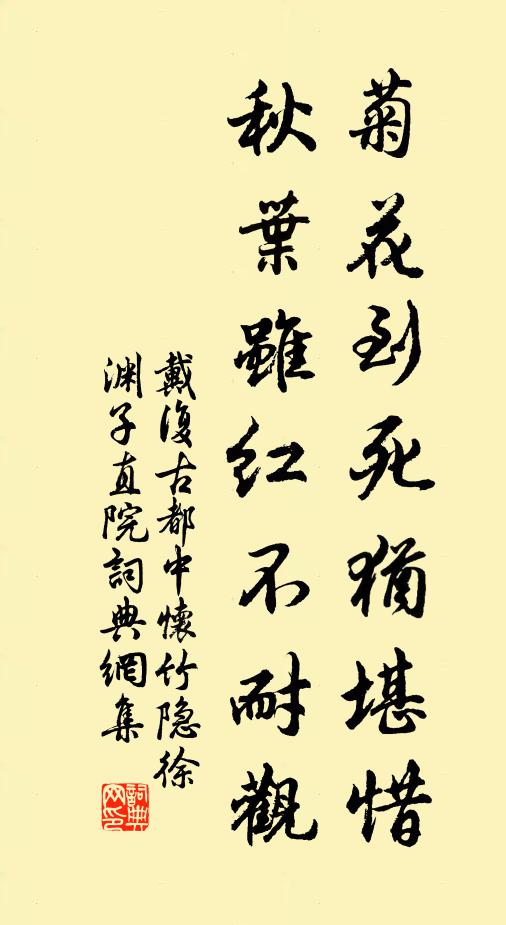 菊花到死猶堪惜
秋葉雖紅不耐觀
戴復古都中懷竹隐徐
渊子直院詞典網集
詞典网印